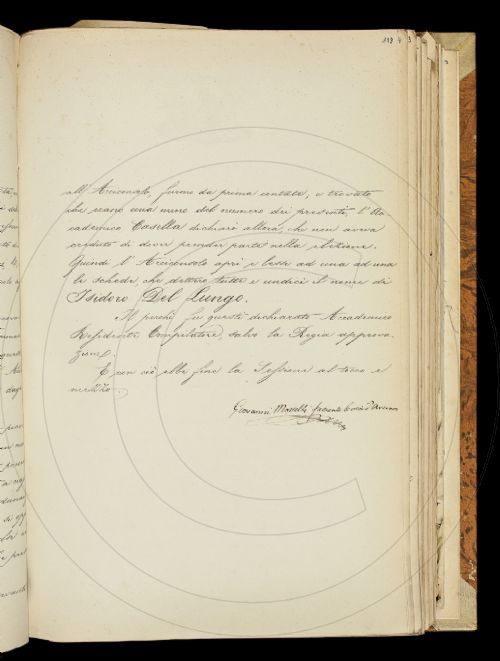 118 4 3
all'Arciconsolo, furono da prima contate, e trovato
che erano una meno del numero dei presenti, l'Ac
cademico Casella dichiarò allora, che non aveva
creduto di dover prender parte nella elezione.
Quindi l'Arciconsolo aprì e lesse ad una ad una
le schede, che dettero tutte e undici il nome di
Isidoro Del Lungo.
Il perchè fu questi dichiarato Accademico
Residente Compilatore, salvo la Regia approva
zione.
E con ciò ebbe fine la Sessione al tocco e
mezzo.
Giovanni facente le veci d'